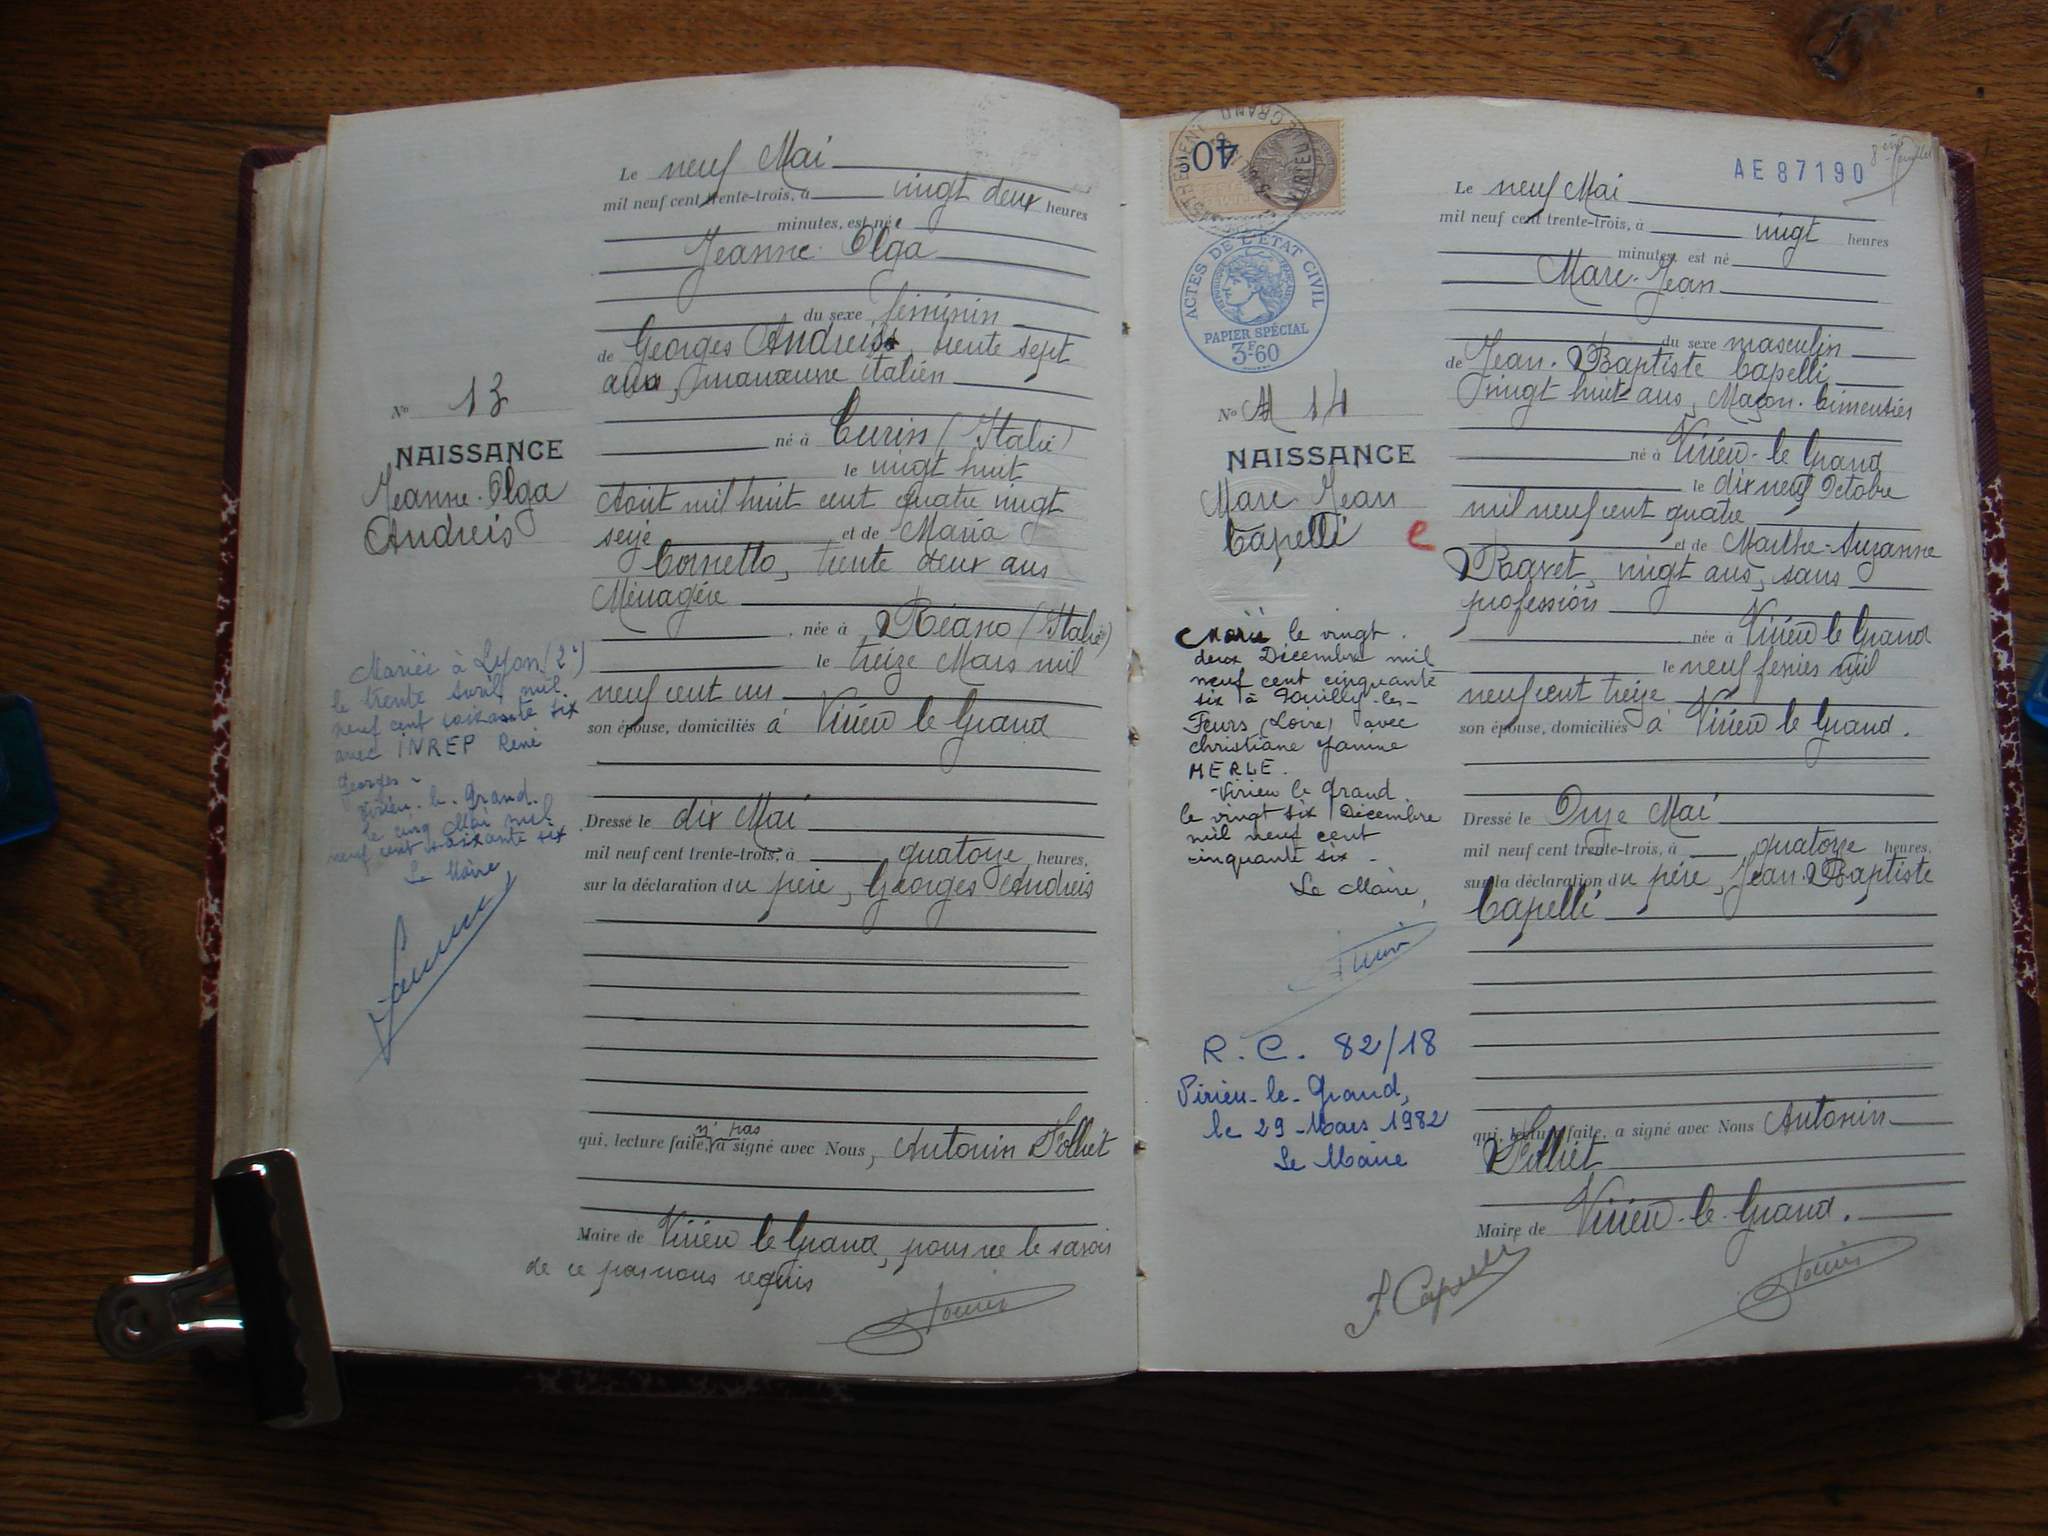 Le neuf Mai
mil neuf cent trente-trois, à vingt deux heures
minutes, est née
Jeanne Olga
du sexe féminin
de Georges Andreis, trente sept
ans, manœuvre italien
né à Turin (Italie)
le vingt huit
Août mil huit cent quatre vingt
seize et de Maria
Cornetto, trente deux ans
Ménagère
née à Réano (Italie)
le treize Mars mil
neuf cent un
son épouse, domiciliés à Virieu le Grand
Dressé le dix Mai
mil neuf cent trente-trois, à quatorze heures,
sur la déclaration du père, Georges Andreis
n'
pas
qui, lecture faite, a signé avec Nous, Antonin
Maire de Virieu le Grand, pour ne le savoir
de ce par nous requis
N° 13
NAISSANCE
Jeanne-Olga
Andreis
Mariée à Lyon (2e)
le trente Avril mil
neuf cent soixante six
avec INREP René
Georges -
Virieu-le-Grand.
le cinq Mai mil
neuf cent soixante six
Le Maire,
40c
ACTES DE L'ÉTAT CIVIL
PAPIER SPÉCIAL
3F60
AE 87190
Le neuf Mai
mil neuf cent trente-trois, à vingt heures
minutes, est né
Marc-Jean
du sexe masculin
de Jean-Baptiste Capelli,
vingt huit ans, Maçon-Cimentier
né à Virieu-le Grand
le dix neuf Octobre
mil neuf cent quatre
et de Marthe-Suzanne
Ravet, vingt ans, sans
profession
née à Virieu le Grand
le neuf
mil
neuf cent treize
son épouse, domiciliés à Virieu le Grand.
Dressé le Onze Mai
mil neuf cent trente-trois, à quatorze heures,
sur la déclaration du père, Jean-Baptiste
Capelli
qui, lecture faite, a signé avec Nous Antonin
Maire de Virieu-le-Grand.
J. Capelli
N° 14
NAISSANCE
Marc Jean
Capelli
C
Marié le vingt
deux Décembre mil
neuf cent cinquante
six à
Feurs (Loire) avec
Christiane Janine
MERLE.
Virieu le Grand
le vingt six Décembre
mil neuf cent
cinquante six -
Le Maire,
R.C. 82/18
Virieu-le-Grand,
le 29 Mars 1982
Le Maire